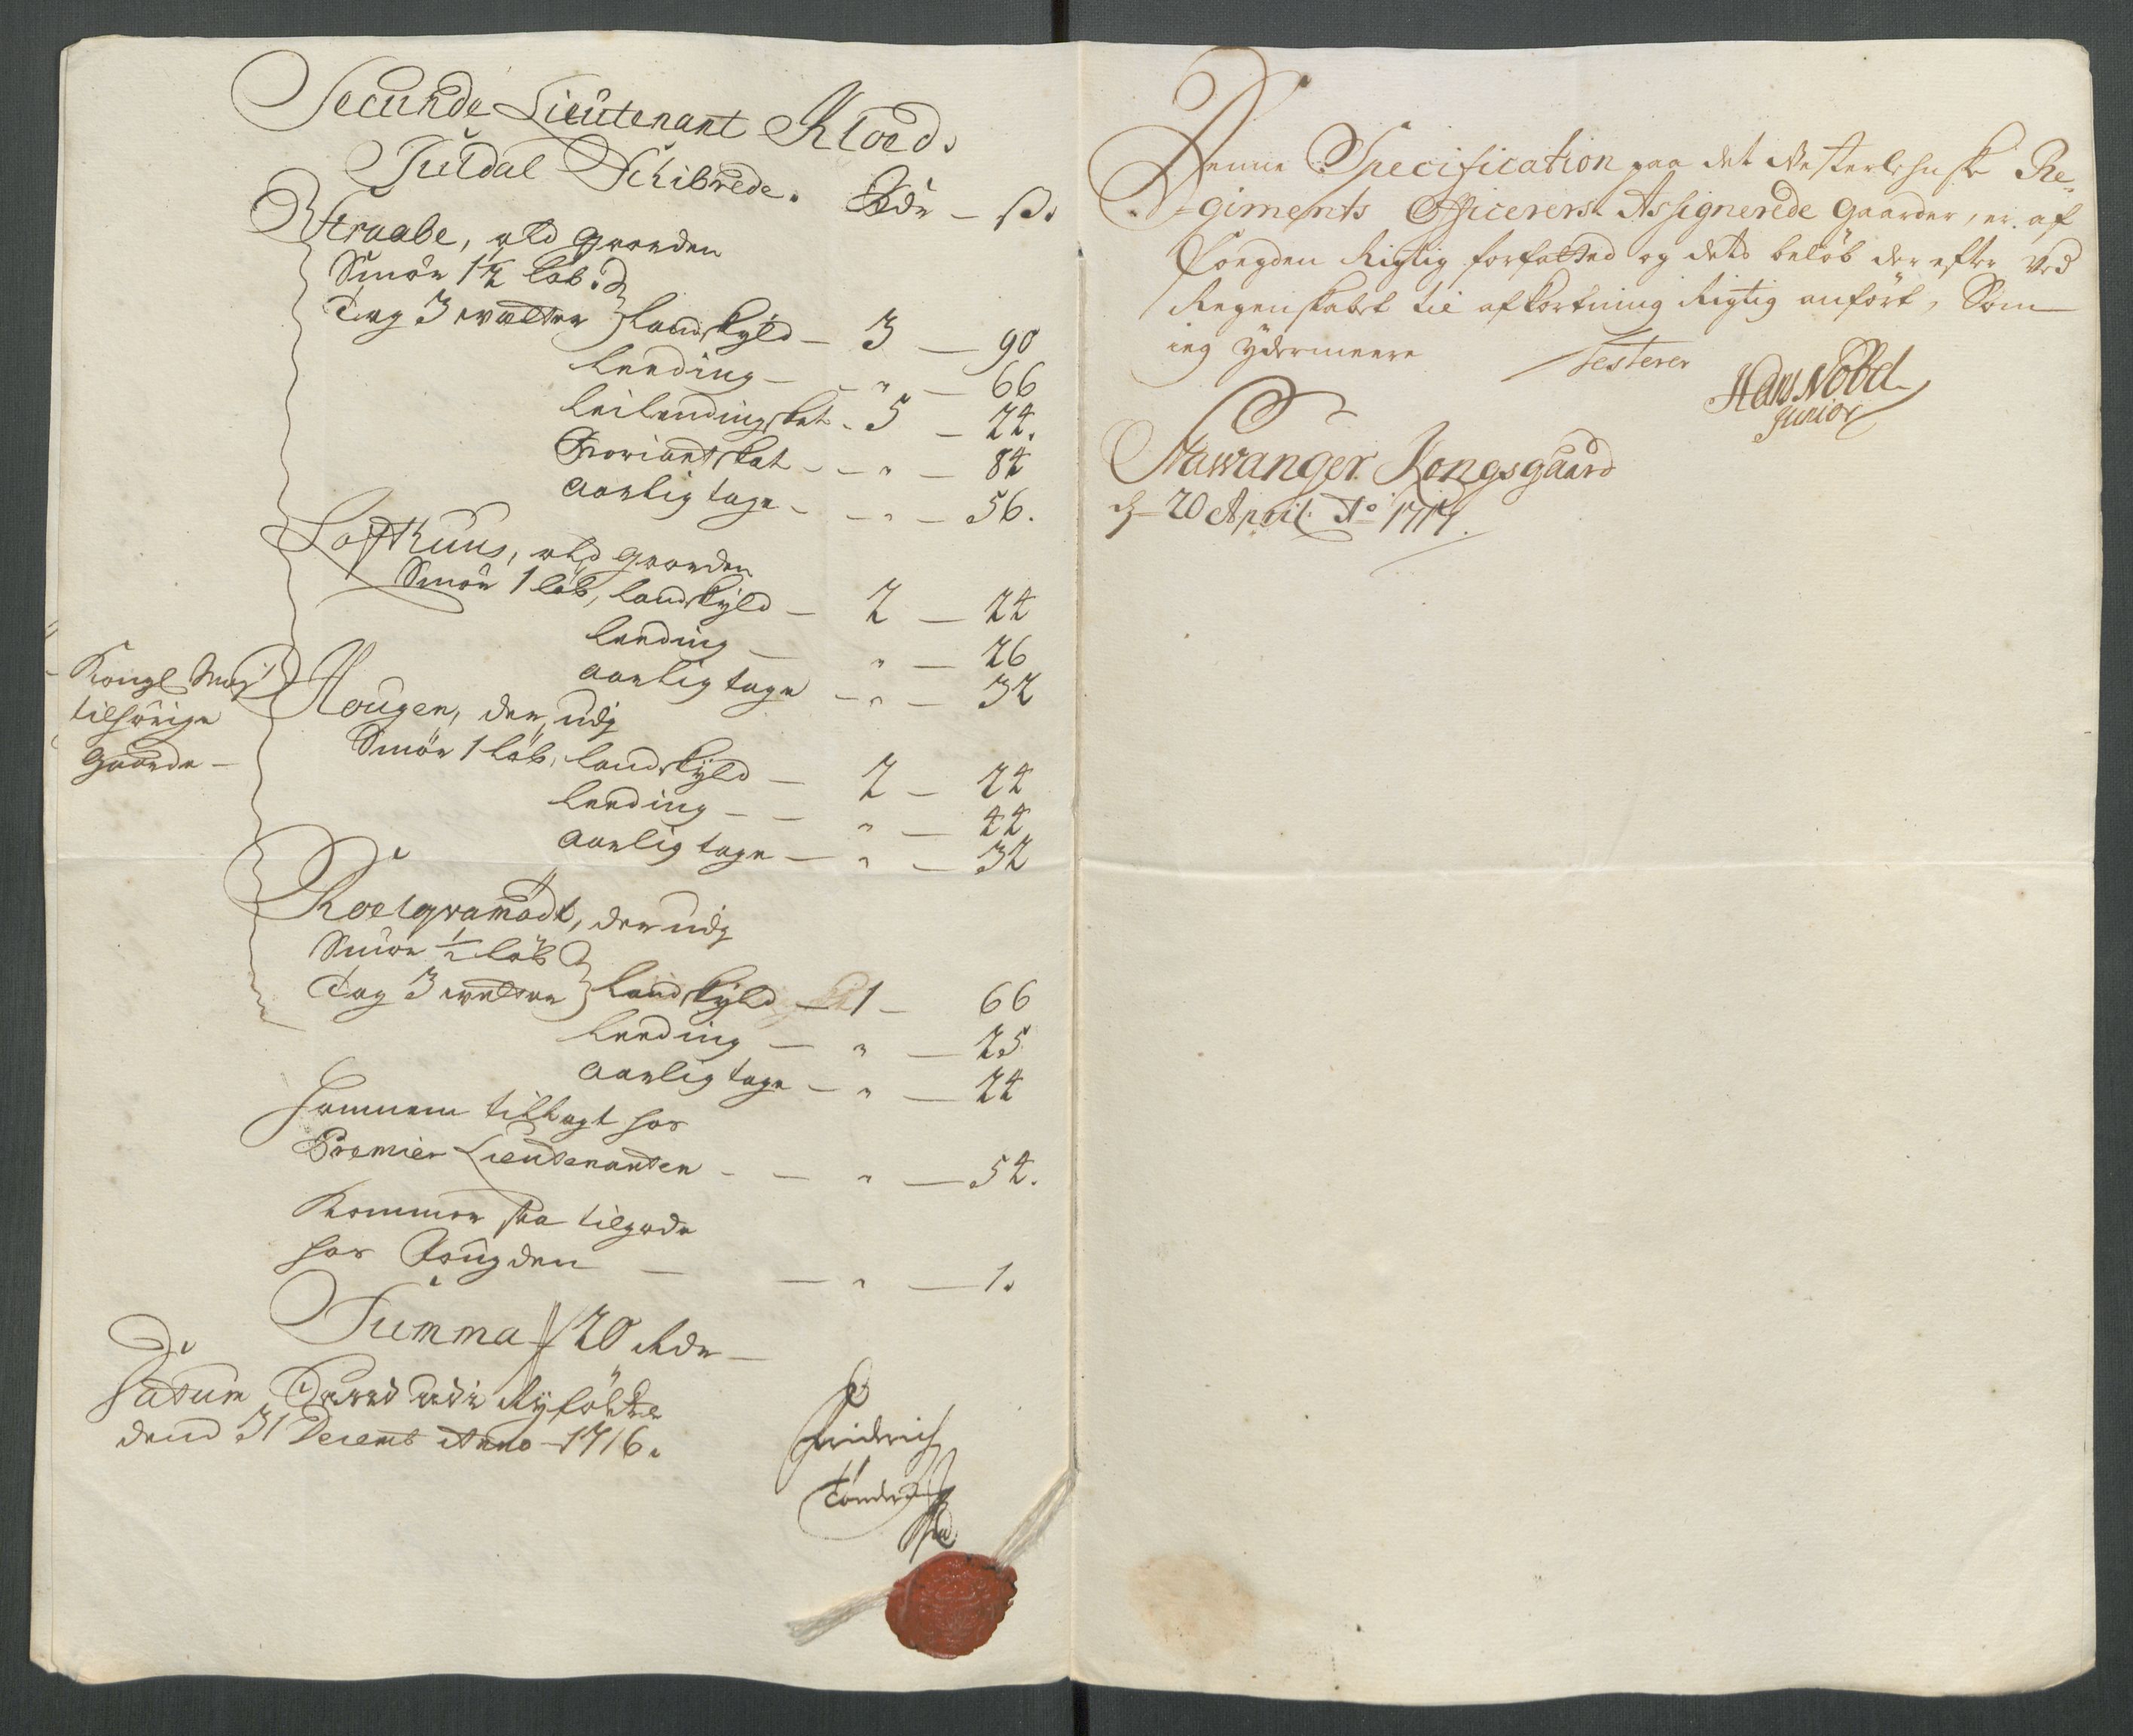 Secunde Lieutenant Kloed.
Suldal Schibrede. Rdr — ß.
Straabe, ald gaarden
Smör 1½ löb.
Tag 3 waetter landskyld — 3 — 90
Leeding — " — 66
Leilendingskat — 5 — 24.
Proviantskat — " — 84
aarlig tage — " — 56.
Lofthuus, ald gaarden
Smör 1 löb, landskyld — 2 — 24
Leeding — " — 26
aarlig tage — " — 32
Kongl May:
tilhörige
gaarde —
Hougen, der udj
Smör 1 löb, landskyld — 2 — 24
Leeding — " — 44
aarlig tage — " — 32
Roelqvamödt, der udj
Smör ½ löb
Tag 3 wetter landskyld — 1 — 66
Leeding — " — 25
aarlig tage — " — 24
hannem tillagt hos
Premier Lieutenanten — " — 54.
Kommer saa tilgode
hos Fougden — " — 1.
Summa 20 Rdr —
Datum udi Ryfölcke
dend 31 Decemb Anno 1716.
Fridrich
Tönder
Denne Specification paa det Vesterlehnske Re-
giments Officerers Assignerede gaarder, er af
Foegden Rigtig forfatted og dets belöb der efter ved
Regenskabet til afkortning Rigtig anfört, Som
ieg ydermeere Testerer
Hans Nobel
Junior
Stawanger Kongsgaard
d 20 April Ao 1717.